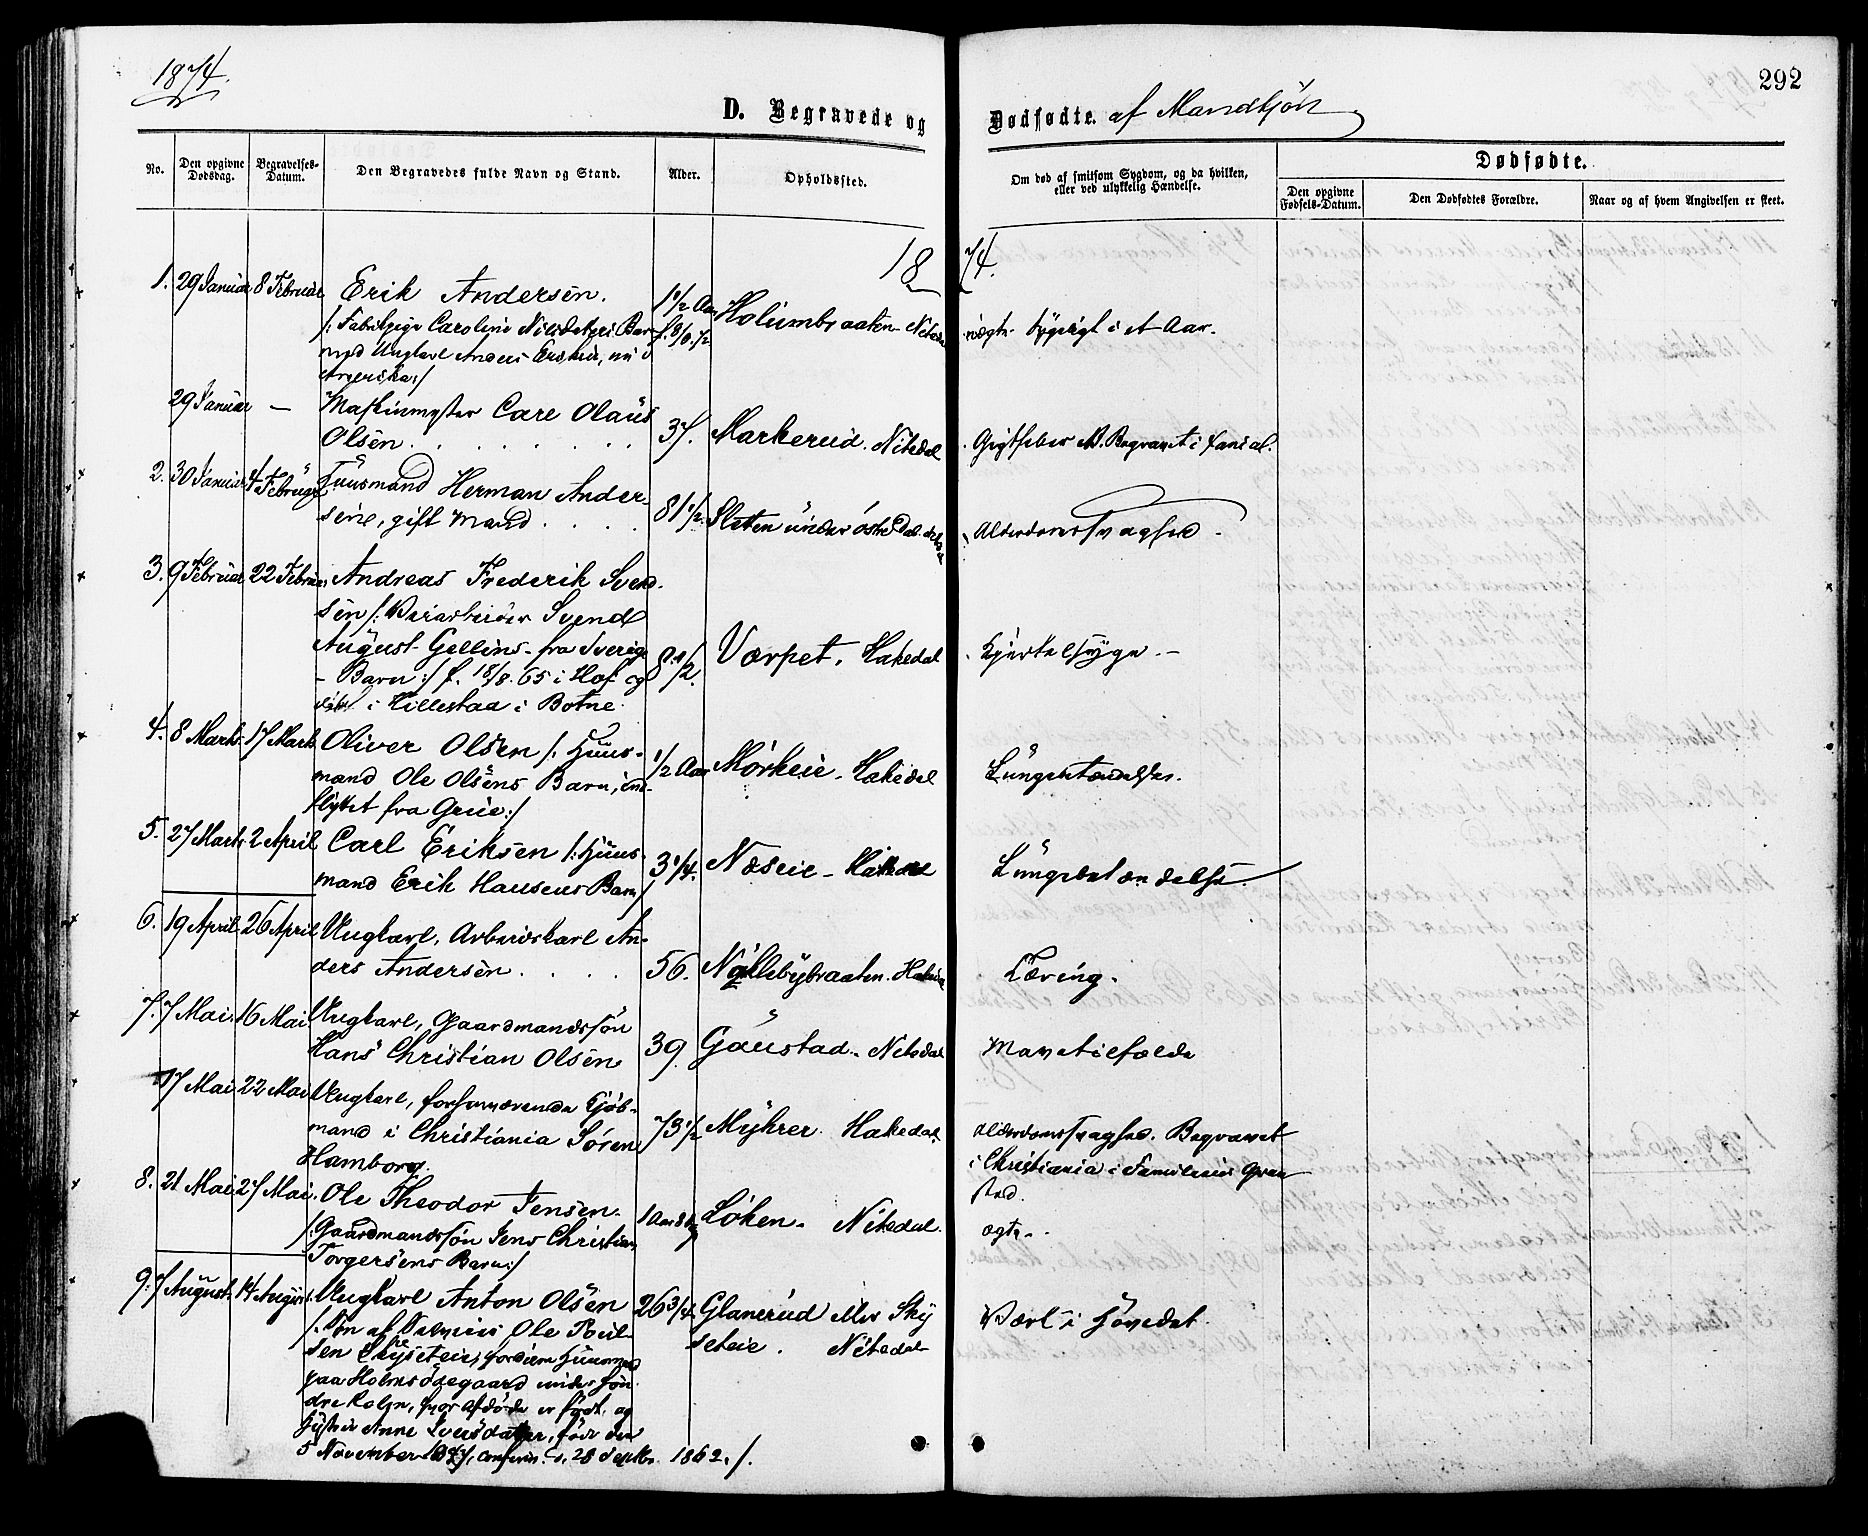 1874.
292
D. Begravede og Dødfødte. af Mandkjøn
No.
Den opgivne Dødsdag.
Begravelses-Datum.
Den Begravedes fulde Navn og Stand.
Alder.
Opholdssted.
Om død af smitsom Sygdom, og da hvilken, eller ved ulykkelig Hændelse.
Dødfødte.
Den opgivne Fødsels-Datum.
Den Dødfødtes Forældre.
Naar og af hvem Angivelsen er skeet.
1874.
1. 29 Januar 8 Februar Erik Andersen. 1 1/2 Aar Holumbraaten Nitedal uægte. sygeligt i et Aar.
/: Fabrikpige Caroline Nilsdatters Barn
med Ungkarl Anders Eriksen, nu i
Amerika:/
29 Januar — Maskinmester Carl Olaus 37. Markerud. Nitedal Gigtfeber Begravet i
Olsen . . . . . .
2. 30 Januar 4 Februar Huusmand Herman Ander- 81 1/2. Sleten under Alderdomssvaghed.
sen, gift Mand . . . .
3. 9 Februar 22 Februar Andreas Frederik Svend- 8 1/2. Værpet. Hakedal Kjertelsyge. —
sen /: Svend
August Gellins fra Sverige
- Barn :/ f. 18/8. 65 i Hof og
i Hillestad i Botne.
4. 8 Marts 17 Marts Oliver Olsen /: Huus- 1/2 Aar Mørkeie. Hakedal Lungebetændelse.
mand Ole Olsens Barn, ind-
flyttet fra Grue:/
5. 27 Marts 2 April Carl Eriksen /: Huus- 3 1/4. Næseie - Hakedal Lungebetændelse.
mand Erik Hansens Barn/
6. 19 April 26 April Ungkarl, Arbeidskarl An- 56. Nøllebybraaten. Hakedal Tæring.
ders Andersen . . . .
7. 7 Mai. 16 Mai Ungkarl, Gaardmandssøn 39. Gaustad. Nitedal Mavetilfælde
Hans Christian Olsen
17 Mai 22 Mai Ungkarl, forhenværende Kjøb- 73 1/2 Myhrer. Hakedal Alderdomssvaghed. Begravet
mand i Christiania Søren i Christiania i Familiens Grav-
Hamborg. sted.
8. 21 Mai 27 Mai. Ole Theodor Jensen. 1 Aar Løken. Nitedal. ægte.
/: Gaardmandssøn Jens Christian
Torgersens Barn:/
9. 7 August. 14 August. Ungkarl Anton Olsen 26 3/4. Glanerud eller Sky Værk i Hovedet.
/: Søn af Ole Poul- seteie. Nitedal
sen Skyseteie, fordum Huusmand
paa Holmsødegaard under Søn-
dre , hvor afdøde er født, og
Hustru Anne Iversdatter, født den
5 November 1847, confirm. d. 28 Septbr. 1862./.